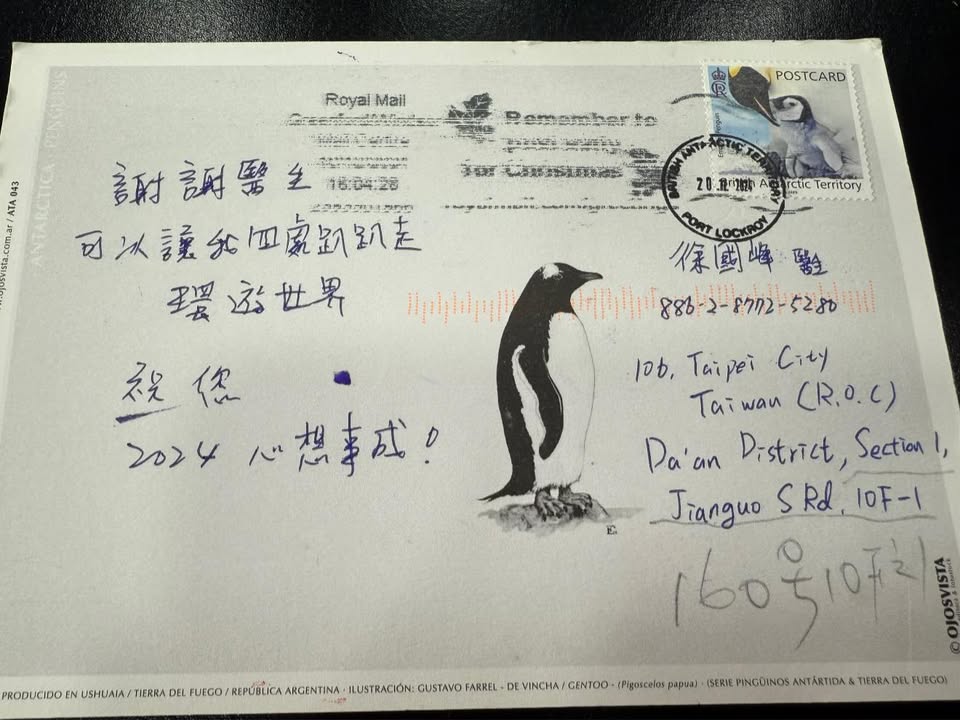 ANTARCTICA · PENGUINS
ojosvista.com.ar / ATA 043
Royal Mail
16.04.28
Remember to
for Christmas
POSTCARD
British Antarctic Territory
BRITISH ANTARCTIC TERRITORY
PORT LOCKROY
謝謝醫生
可以讓我四處趴趴走
環遊世界
祝您
2024 心想事成!
徐國峰 醫生
886-2-8772-5280
106, Taipei City
Taiwan (R.O.C)
Da'an District, Section 1,
Jianguo S Rd, 10F-1
160号10F之1
E.
© OJOSVISTA
PRODUCIDO EN USHUAIA / TIERRA DEL FUEGO / REPÚBLICA ARGENTINA · ILUSTRACIÓN: GUSTAVO FARREL - DE VINCHA / GENTOO - (Pigoscelos papua) · (SERIE PINGÜINOS ANTÁRTIDA & TIERRA DEL FUEGO)